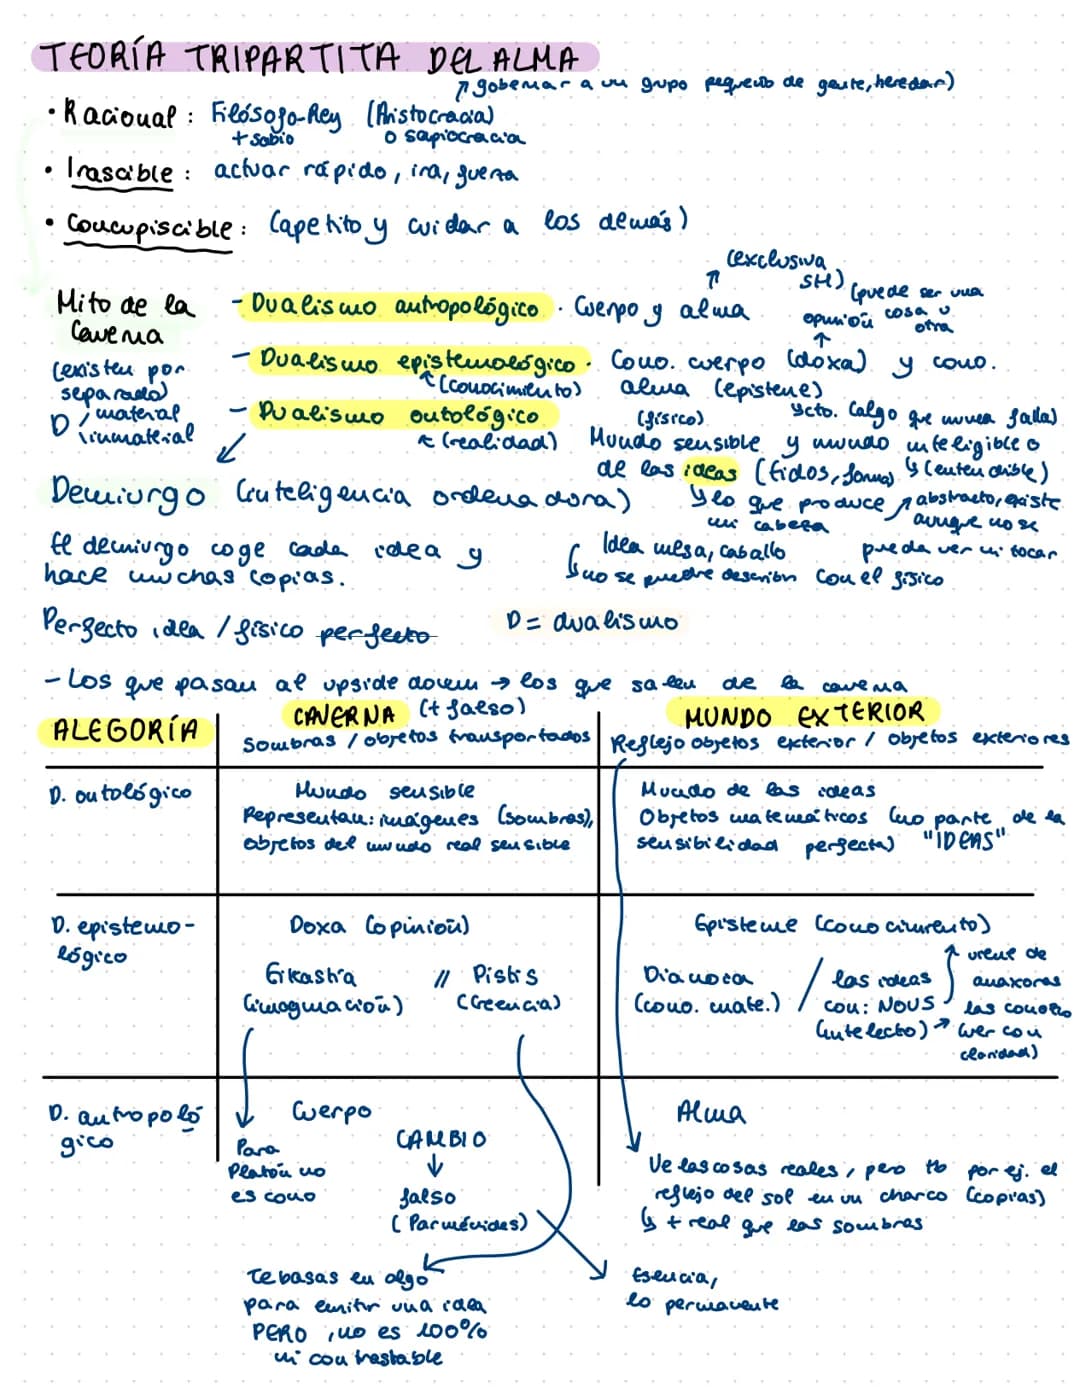 TEORÍA TRIPARTITA DEL ALMA
↗ gobernar a un grupo pequeño de gente, heredar)
• Racional: Filósofo-Rey (Aristocracia)
+ sabio o sapiocracia
• Irascible: actuar rápido, ira, guerra
• Concupiscible: (apetito y cuidar a los demás)
(exclusiva
SH)
Mito de la - Dualismo antropológico. Cuerpo y alma
Caverna
(puede ser una
opinión cosa u
otra
(existen por
separado)
D / material
\ inmaterial
- Dualismo epistemológico. Cono. cuerpo (doxa) y cono.
↑ (conocimiento) alma (episteme)
ycto. (algo que nunca falla)
- Dualismo ontológico (físico)
↖ (realidad) Mundo sensible y mundo inteligible o
de las ideas (Eidos, forma) ↳ (entendible)
Demiurgo (inteligencia ordenadora)
↳ lo que produce
mi cabeza
↗ abstracto, existe
aunque no se
pueda ver ni tocar
El demiurgo coge cada idea y
hace muchas copias.
Idea mesa, caballo
↳ no se puedre describir con el físico
Perfecto idea / físico perfecto
D = dualismo
- Los que pasan al upside down → los que salen de la caverna
ALEGORÍA
CAVERNA (+ falso)
Sombras / objetos transportados
MUNDO EXTERIOR
Reflejo objetos exterior / objetos exteriores
D. ontológico
Mundo sensible
Representan: imágenes (sombras),
objetos del mundo real sensible
Mundo de las ideas
Objetos matemáticos (no parte de la
sensibilidad perfecta) "IDEAS"
D. epistemo-
lógico
Doxa (opinión)
Eikasía // Pistis
(imaginación) (creencia)
Episteme (conocimiento)
Dianoia / las ideas
(cono. mate.) / con: NOUS
(intelecto) → (ver con
claridad)
↑ viene de
anaxoras
D. antropoló
gico
Cuerpo
Alma
Para
Platón no
es cono
CAMBIO
↓
falso
(Parménides)
Ve las cosas reales, pero tb por ej. el
reflejo del sol en un charco (copias)
↳ + real que las sombras
Te basas en algo
para emitir una idea
PERO, no es 100%
ni contrastable
Esencia,
lo permanente